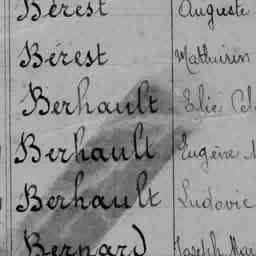 Bérest Auguste
Bérest Mathurin
Berhault Elie
Berhault Eugène
Berhault Ludovic
Bernard Joseph